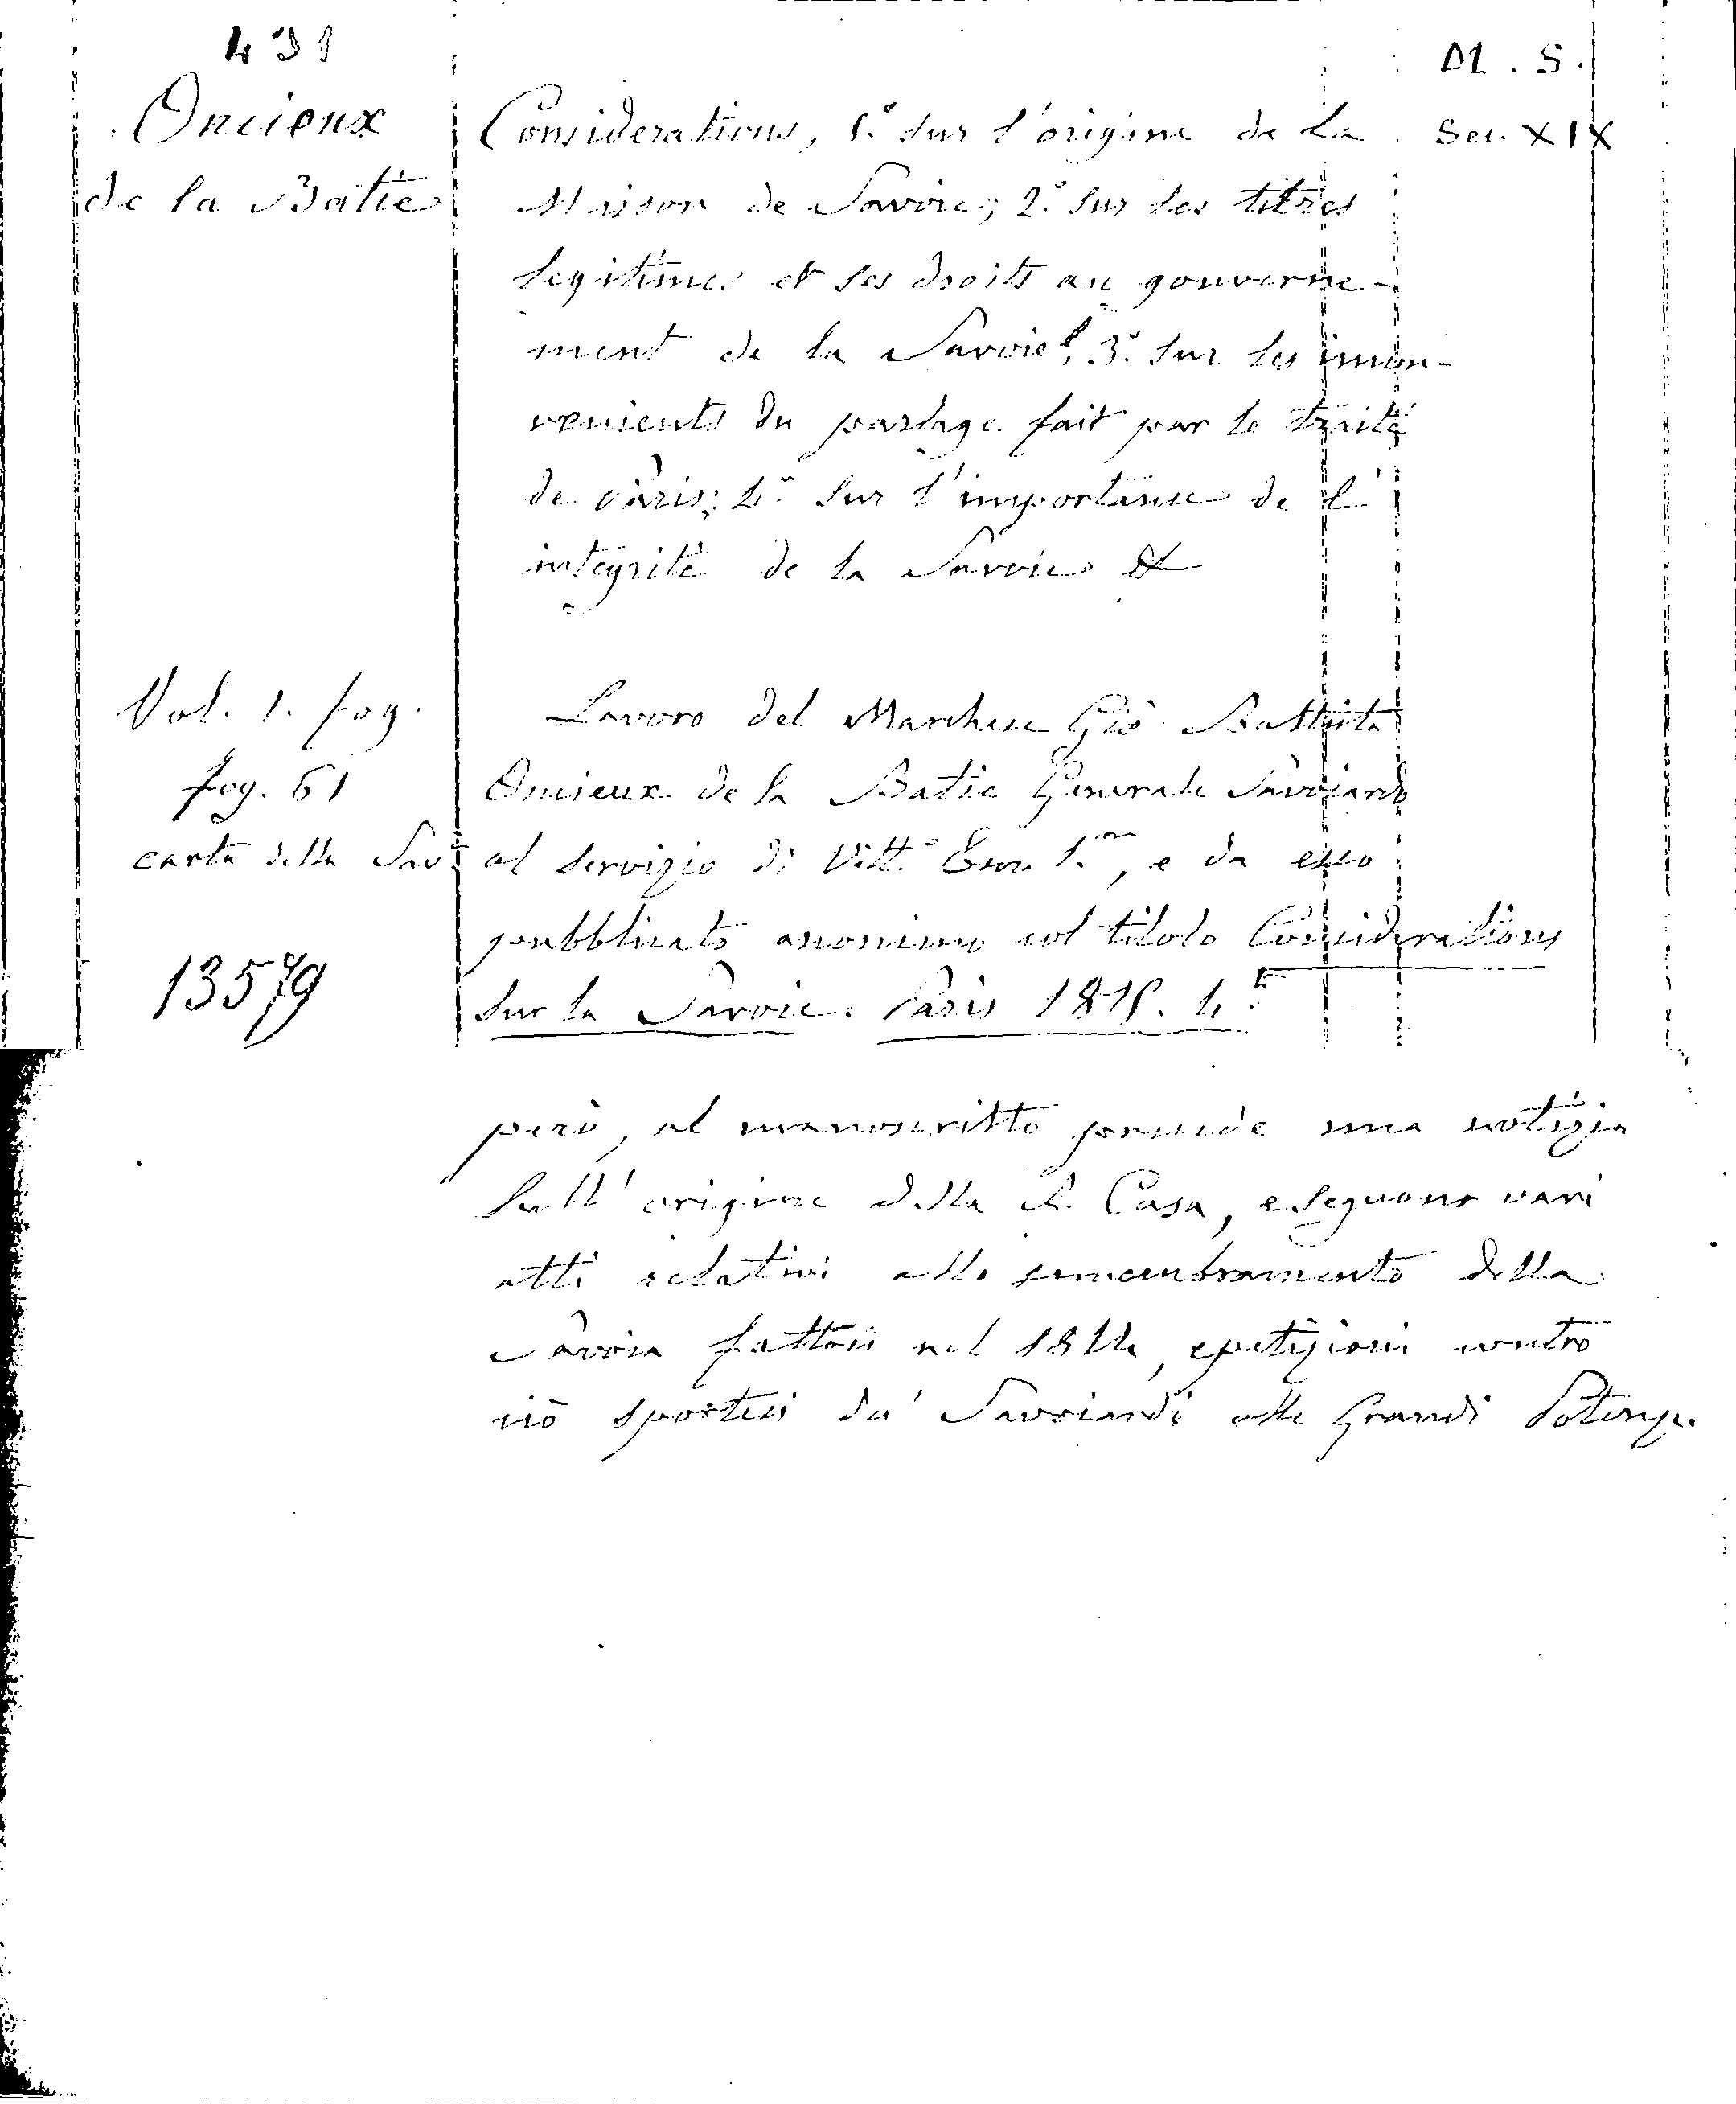 431
M. S.
Oncieux
de la Batie
Considerations, 1.° sur l'origine de la
Sec. XIX
Maison de Savoie; 2.° sur ses titres
legitimes et ses droits au gouverne-
ment de la Savoie; 3.° sur les incon-
venients du partage fait par le traité
de Paris; 4.° sur l'importance de l'
intégrité de la Savoie &
Vol. 1. fog.
fog. 61
carta della Sav.
13579
Lavoro del Marchese Gio Battista
Oncieux de la Batie Generale Savoiardo
al servizio di Vitt.° Em. 1.mo, e da esso
pubblicato anonimo col titolo Considerations
sur la Savoie. Paris 1815. 4.°
però, al manoscritto precede una notizia
sull' origine della R. Casa, e seguono vari
atti relativi allo smembramento della
Savoia fattosi nel 1814, e petizioni contro
ciò sportesi da' Savoiardi alle Grandi Potenze.